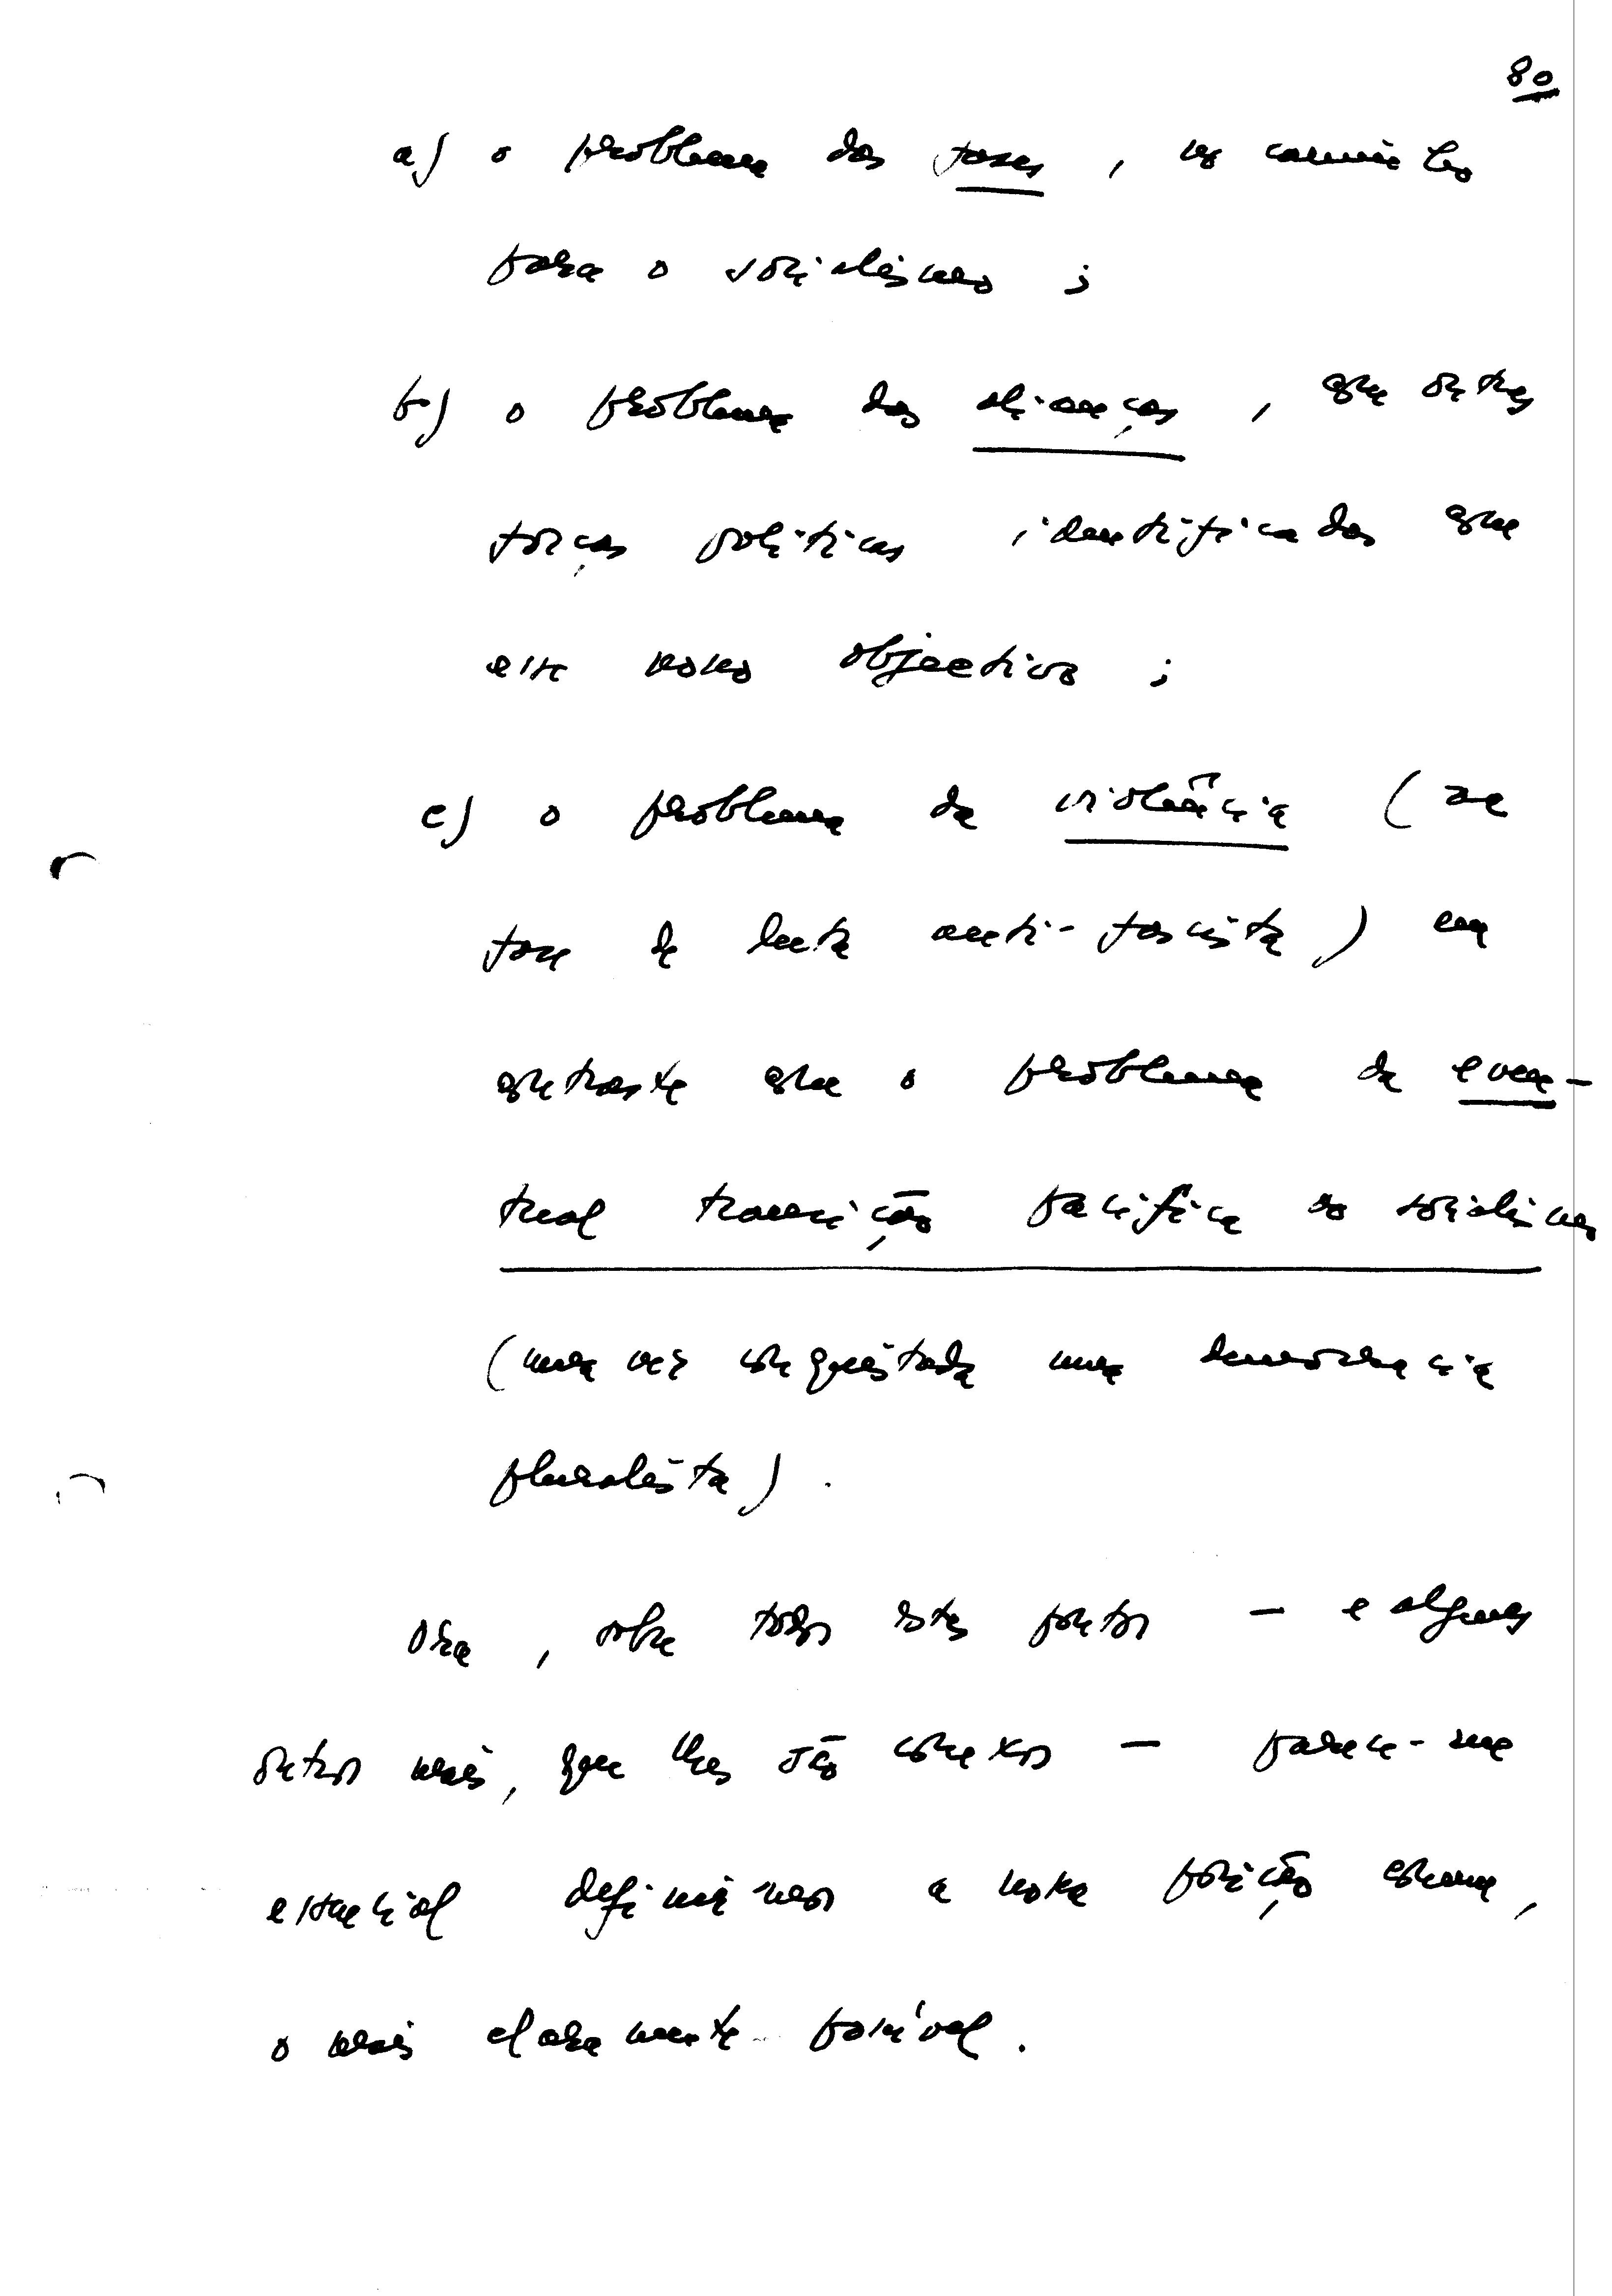 80
a) o problema das fases, no caminho
para o socialismo;
b) o problema das alianças, com outras
forças políticas identificadas com
esse nosso objectivo;
c) o problema da violência (na
fase da luta anti-fascista) em
contraste com o problema da even-
tual transição pacífica ao socialismo
(uma vez conquistada uma democracia
pluralista).
Ora, sobre todos estes pontos — e alguns
outros mais, que lhes são conexos — parece-me
essencial definirmos a nossa posição comum,
o mais claramente possível.